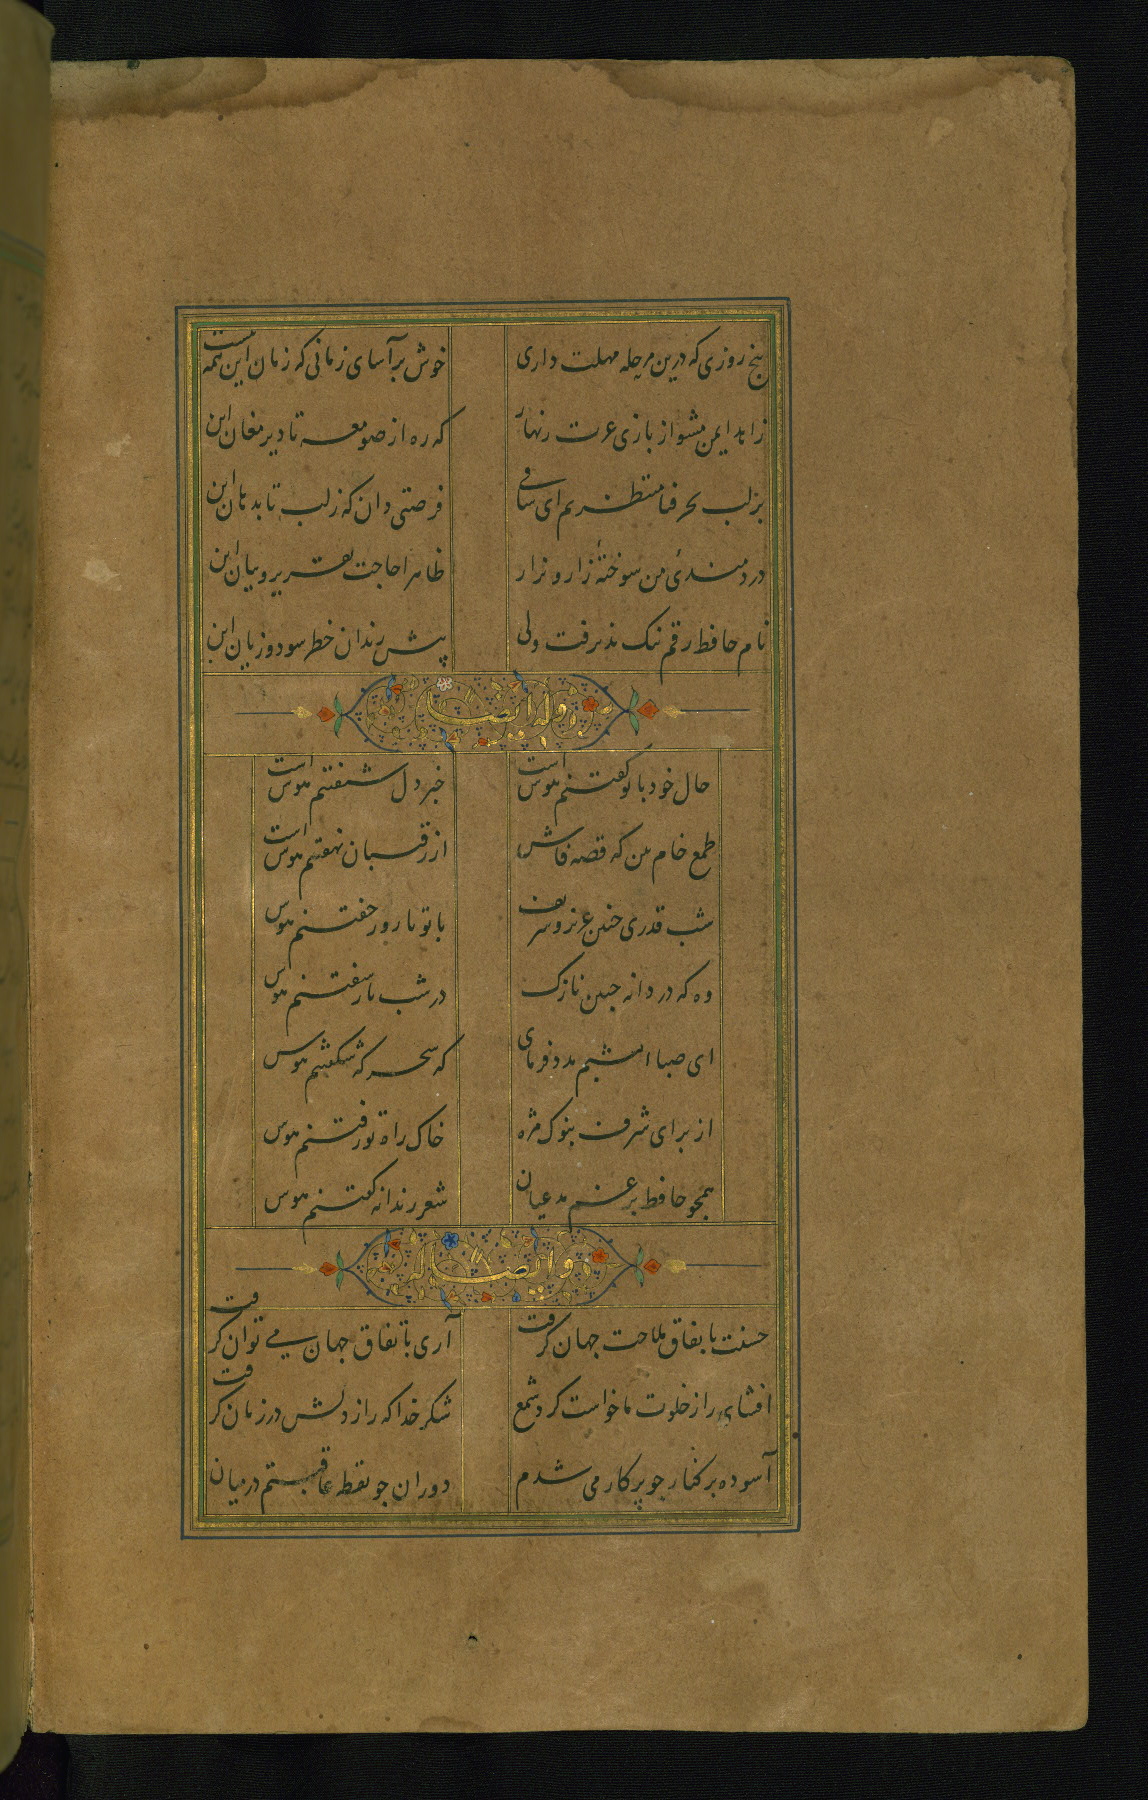 پنج روزی که درین مرحله مهلت داری خوش برآسای زمانی که زمان این همه نیست
زاهد ایمن مشو از بازی غیرت زنهار که ره از صومعه تا دیر مغان این
بر لب بحر فنا منتظریم ای ساقی فرصتی دان که ز لب تا بدهان این
دردمندئ من سوختهٔ زار و نزار ظاهرا حاجت تقریر و بیان این
نام حافظ رقم نیک پذیرفت ولی پیش رندان خط سود و زیان این
و له ایضا
حال خود با تو گفتنم هوس است خبر دل شنفتنم هوس است
طمع خام بین که قصه فاش از رقیبان نهفتنم هوس است
شب قدری چنین عزیز و شریف با تو تا روز خفتنم هوس
وه که دردانه چنین نازک در شب تار سفتنم هوس
ای صبا امشبم مدد فرمای که سحرکه شکفتنم هوس
از برای شرف بنوک مژه خاک راه تو رفتنم هوس
همچو حافظ برغم مدعیان شعر رندانه گفتنم هوس
و ایضا له
حسنت باتفاق ملاحت جهان گرفت آری باتفاق جهان می توان گرفت
افشای راز خلوت ما خواست کرد شمع شکر خدا که راز دلش در زمان گرفت
آسوده بر کنار چو پرکار می شدم دوران چو نقطه عاقبتم در میان